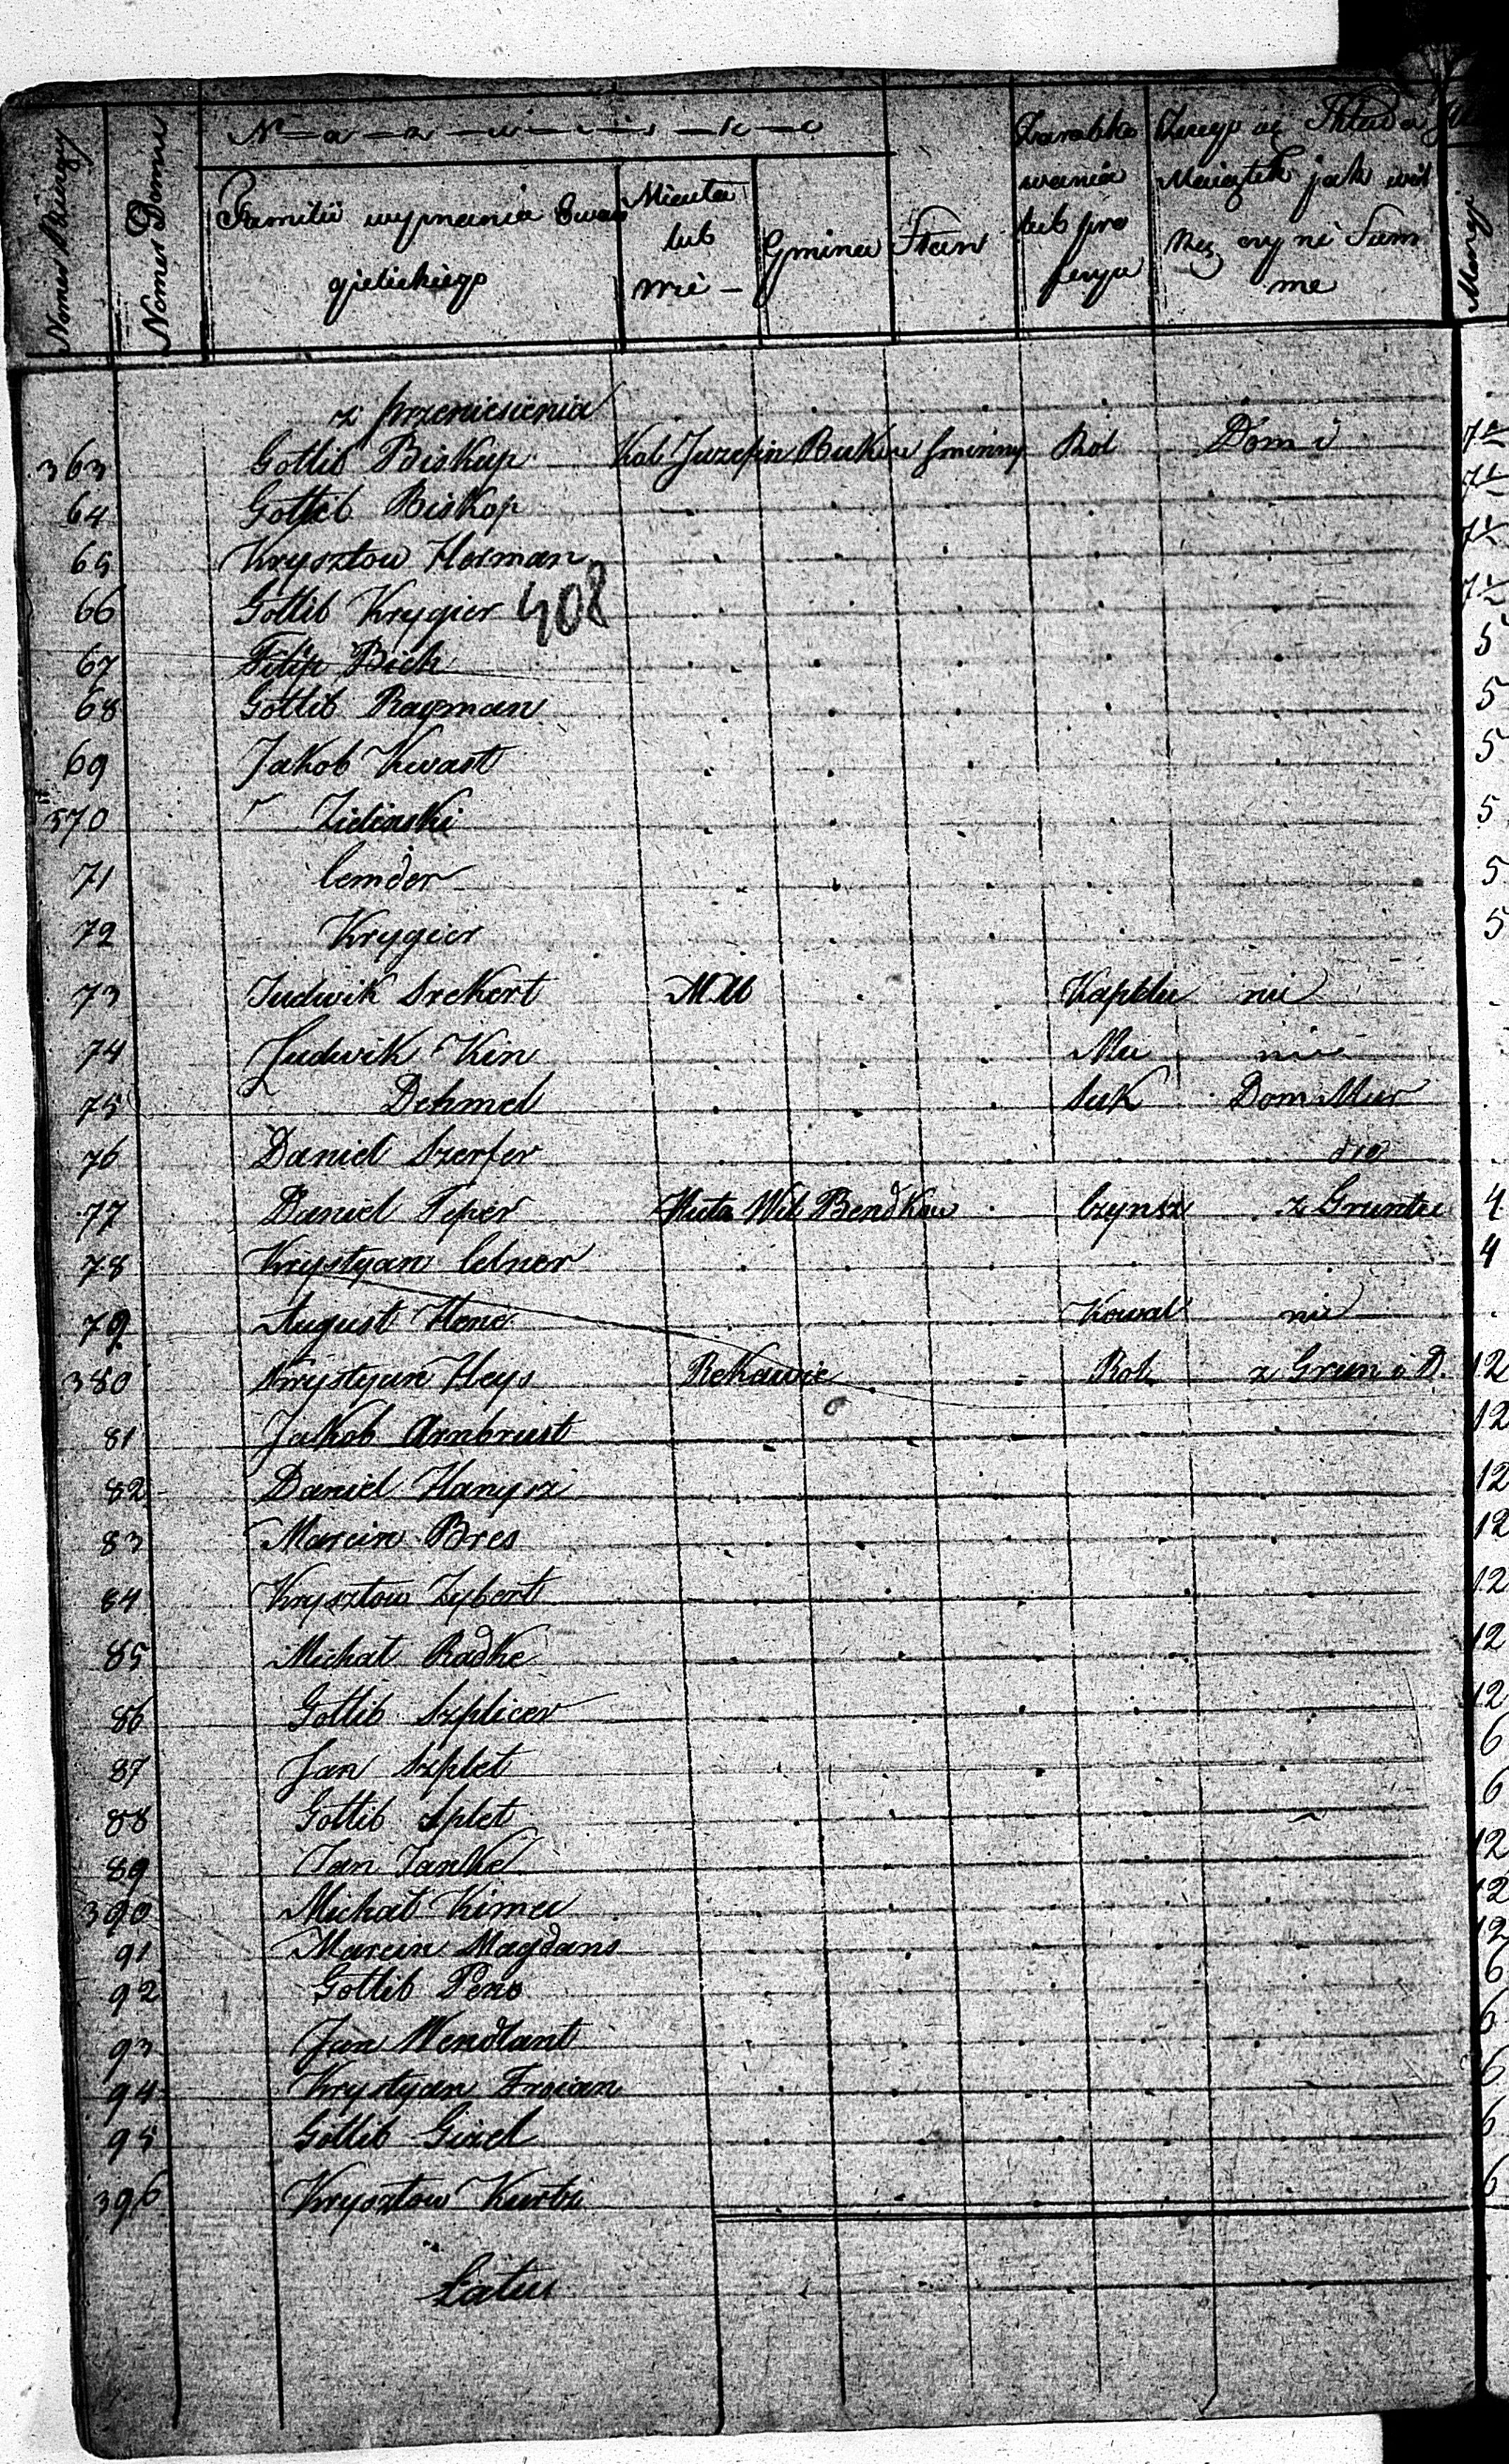 Numer Domu
Familii wyznania Ewan
gielickiego
Miasta
lub
wsi -
Gmina
Stan
Zarobko
wania
lub pro
fesya
Maiątek jak wiel
me
z przeniesienia
363 Gottlib Biskup Kol Juzefin Buków Gminny Rol Dom i 7½
64 Gottlib Biskop 7½
65 Krysztow Herman 7½
66 Gottlib Krygier 408 7½
67 Filip Bich 5
68 Gottlib Rayman 5
69 Jakob Kwast 5
370 Zielinski 5
71 Cemder 5
72 Krygier 5
73 Ludwik Szekert M U nie
74 Ludwik Kin nie
75 Dehmel Suk Dom Mur
76 Daniel Szerfer
77 Daniel Teper Huta Wil Bendkow Czynsz z Gruntu 4
78 Krystyan Celner 4
79 August Hene Kowal nie
380 Krystyan Heys Rekawie Rol z Grun i D. 12
81 Jakob Arnbrust 12
82 Daniel Hanysz 12
83 Marcin Bres 12
84 Krysztow Zybert 12
85 Michał Radke 12
86 Gottlib Szplicer 12
87 Jan Szplet 6
88 Gottlib Splet 6
89 Jan Janke 12
390 Michał Kimer 12
91 Marcin Magdans 12
92 Gottlib Pens 6
93 Jan Wendlant 6
94 Krystyan Froian 6
95 Gottlib Gizel 6
396 Krysztow Kurtz 6
Latus